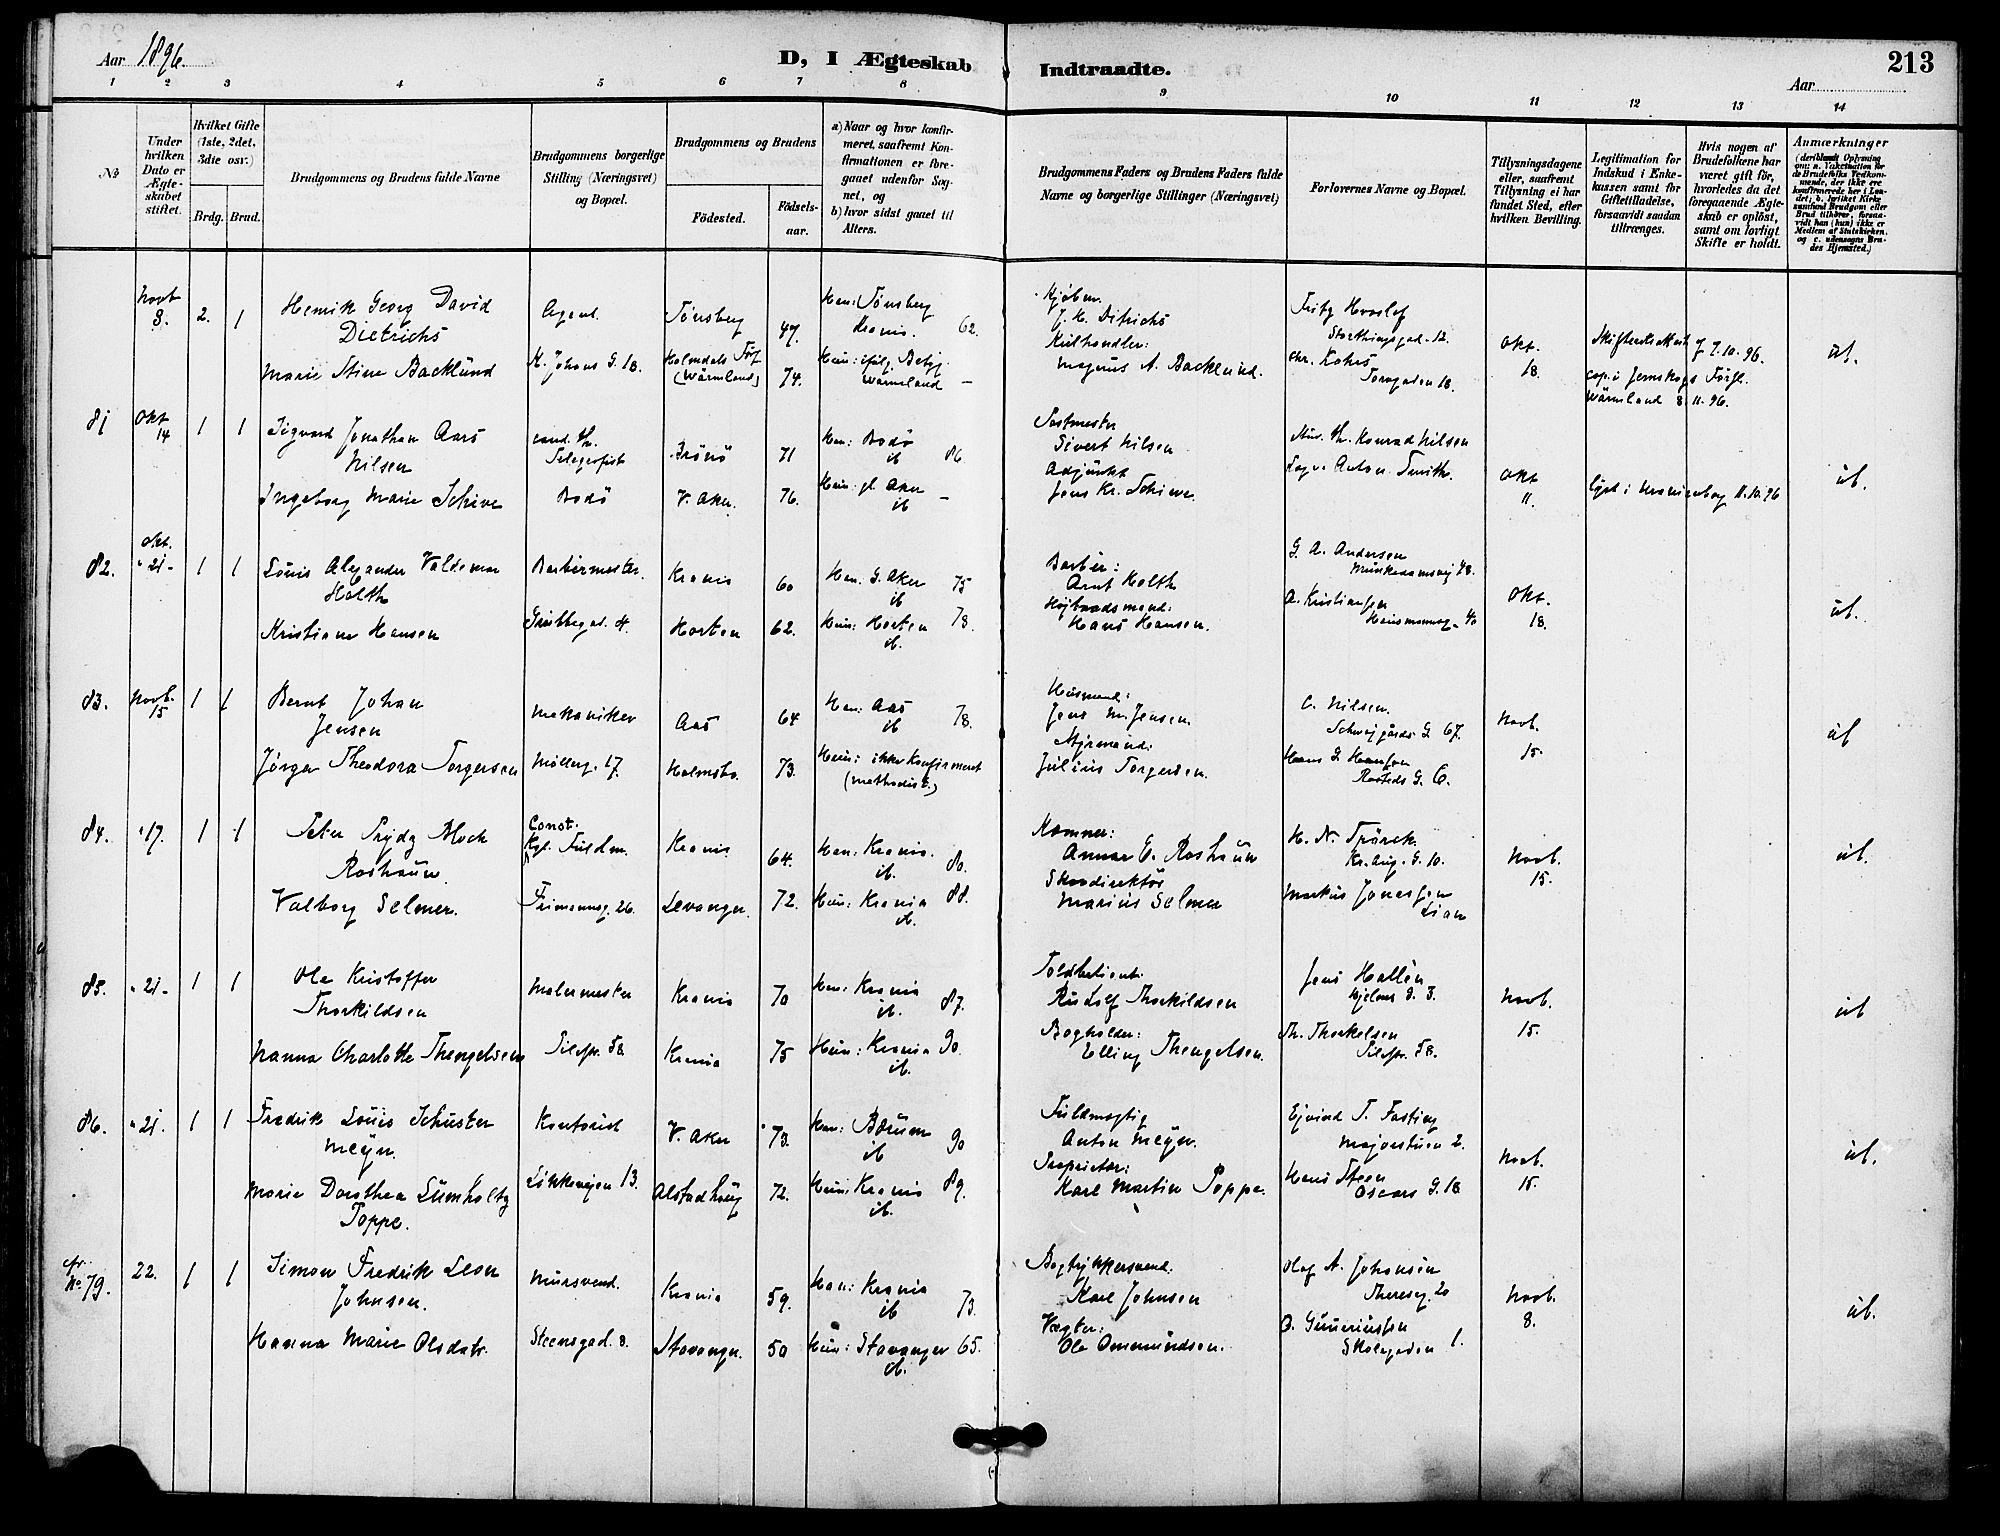 Aar 1896.
D, I Ægteskab Indtraadte.
213
Aar
1 2 3 4 5 6 7 8 9 10 11 12 13 14
№
Under hvilken Dato er Ægteskabet stiftet.
Hvilket Gifte (1ste, 2det, 3die osv.)
Brdg. Brud.
Brudgommens og Brudens fulde Navne
Brudgommens borgerlige Stilling (Næringsvei) og Bopæl.
Brudgommens og Brudens
Födested.
Födselsaar.
a) Naar og hvor konfirmeret, saafremt Konfirmationen er foregaaet udenfor Sognet, og
b) hvor sidst gaaet til Alters.
Brudgommens Faders og Brudens Faders fulde Navne og borgerlige Stillinger (Næringsvei)
Forlovernes Navne og Bopæl.
Tillysningsdagene eller, saafremt Tillysning ei har fundet Sted, efter hvilken Bevilling.
Legitimation for Indskud i Enkekassen samt for Giftetilladelse, forsaavidt saadan tiltrænges.
Hvis nogen af Brudefolkene har været gift för, hvorledes da det foregaaende Ægteskab er oplöst, samt om lovligt Skifte er holdt.
Anmærkninger
Novt 8. 2. 1
Henrik Georg David Dietrichs
Agent.
Tönsberg 47.
Han: Tönsberg Krania. 62.
Kjøbm. J. H. Ditrichs
Fritz Hvoslef Storthingsgad. 12.
Marie Stine Backlund
K. Johans G. 18.
Holmedals (Wärmland) 74.
Wärmland —
Magnus A. Backlund.
chr. Kohrs Torvgaden 18.
Okt. 18.
Skifteattest 7.10.96.
Wärmland 8.11.96.
ub.
81 Okt 14 1 1
Sigvard Jonathan Aars Nilsen
Telegrafist
Brönö 71
Han: Bodö ib 86.
Postmester Sivert Nilsen
Konrad Nilsen
Ingeborg Marie Schive
Bodö
V. Aker. 76.
Hun: Aker ib —
Adjunkt Jens Kr. Schive
Anton Smith.
Okt 11.
lyst i Uranienborg 11.10.96
ub.
82. Okt. 21 1 1
Louis Alexander Valdemar Holth
Barbermester.
Krania 60
Han: G. Aker ib 75
Barber: Arnt Holth
G. A. Andersen Munkedamsvej 48.
Kristiane Hansen
Grubbegad. 4.
Horten 62.
Hun: Horten ib. 78.
Hans Hansen.
A. Kristiansen Hausmannsg. 40
Okt. 18.
ub.
83. Novb. 15 1 1
Bernt Johan Jensen
Mekaniker
Aas 64
Han: Aas ib 78.
Husmand: Jens M. Jensen.
C. Nilsen. Schweigårds G. 67.
Jörgine Theodora Torgersen
Möllerg. 17.
Holmsbo. 73.
Hun: ikke Konfirmeret (methodist.)
Julius Torgersen.
Hans G. Hansen Rosteds G. 6.
Novb. 15.
ub
84. 17. 1 1
Peter Frydz Bloch Roshauw.
Const. Kgl. Fuldm.
Krania 64.
Han: Krania. ib. 80.
Kæmner: Annar E. Roshauw
H. N. Kr. Aug. G. 10.
Valborg Selmer.
Frimannsg. 26
Levanger. 72.
Hun: Krania ib. 88.
Skovdirektör Marius Selmer
Markus Jonassen Lian
Novb. 15.
ub.
85. 21 1 1
Ole Kristoffer Thorkildsen
Malermester
Krania 70
Han: Krania ib. 87.
Toldbetient: Rudolf Thorkildsen
Jens Hallén Hjelms G. 3.
Nanna Charlotte Thengelsen
Pilestr. 58
Krania 75
Hun: Krania ib. 90.
Bogholder: Elling Thengelsen.
Th. Thorkelsen Pilestr. 58.
Novb. 15.
ub
86. 21. 1 1
Fredrik Louis Schuster Meyn.
Kontorist
V. Aker 73.
Han: Bærum ib 90
Fuldmægtig Anton Meyn.
Ejvind T. Fasting Majorstuen 2.
Marie Dorothea Lumholtz Poppe.
Lökkevejen 13.
Alstadhaug 72.
Hun: Krania ib. 89.
Proprietær: Karl Martin Poppe.
Hans Steen Oscars G. 18
Novb. 15.
ub.
cfr. No. 79. 22. 1 1
Simon Fredrik Leon Johnsen.
Mursvend.
Krania 59.
Han: Krania ib 73.
Bogtrykkersvend: Karl Johnsen
Olaf A. Johansen Theresg. 20
Hanna Marie Olsdatr.
Steensgad. 8.
Stavanger. 50
Hun: Stavanger ib. 65.
Vægter: Ole Ommundsen.
O. Gunneriussen Skolegaden 1.
Novb. 8.
ub.